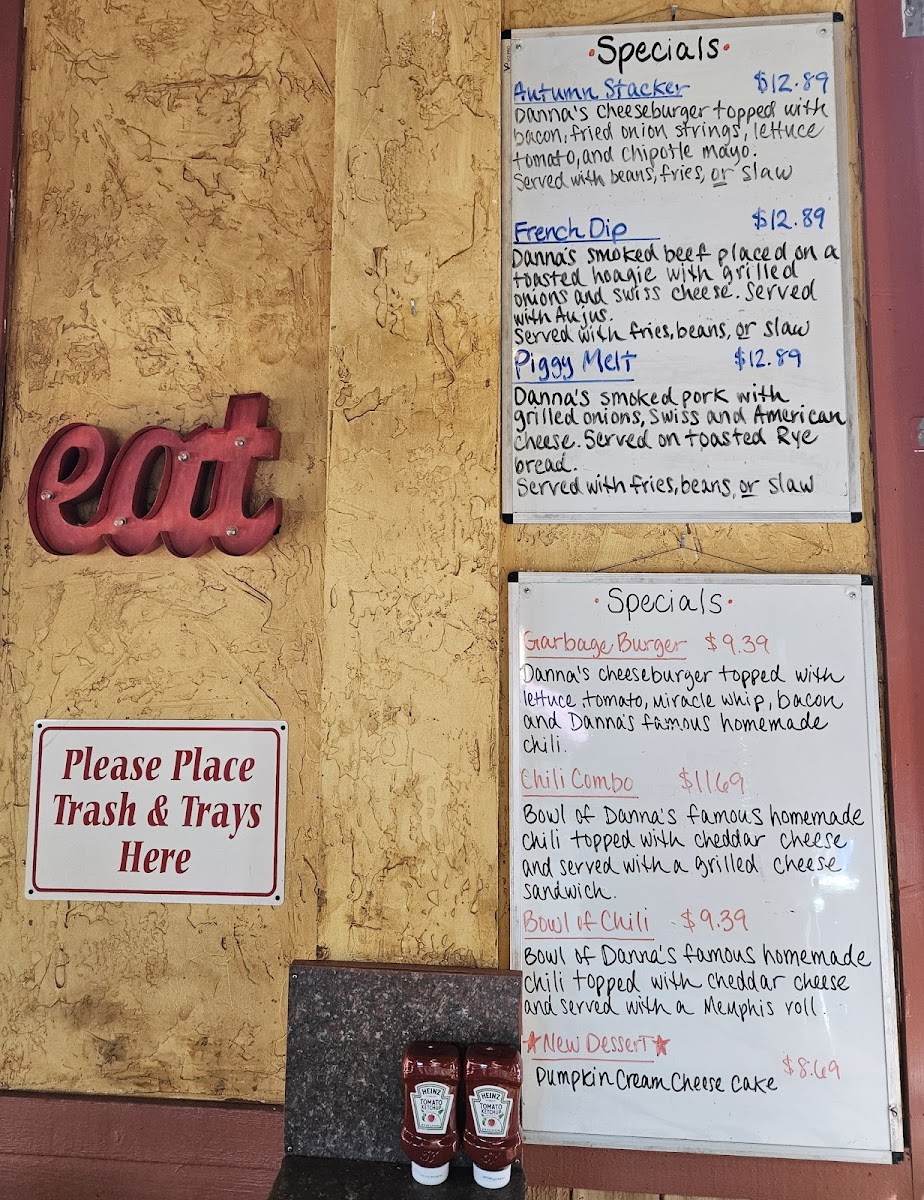 •Specials•
Autumn Stacker $12.89
Danna's cheeseburger topped with
bacon, fried onion strings, lettuce
tomato, and chipotle mayo.
Served with beans, fries, or slaw
French Dip $12.89
Danna's smoked beef placed on a
toasted hoagie with grilled
onions and swiss cheese. Served
with Aujus.
Served with fries, beans, or slaw
Piggy Melt $12.89
Danna's smoked pork with
grilled onions, swiss and American
cheese. Served on toasted Rye
bread.
Served with fries, beans, or slaw
eat
•Specials•
Garbage Burger $9.39
Danna's cheeseburger topped with
lettuce, tomato, Miracle Whip, bacon
and Danna's famous homemade
chili.
Chili Combo $11.69
Bowl of Danna's famous homemade
chili topped with cheddar cheese
and served with a grilled cheese
sandwich.
Bowl of Chili $9.39
Bowl of Danna's famous homemade
chili topped with cheddar cheese
and served with a Memphis roll.
★New Dessert★
Pumpkin Cream Cheese Cake $8.69
Please Place
Trash & Trays
Here
HEINZ
TOMATO
KETCHUP
HEINZ
TOMATO
KETCHUP